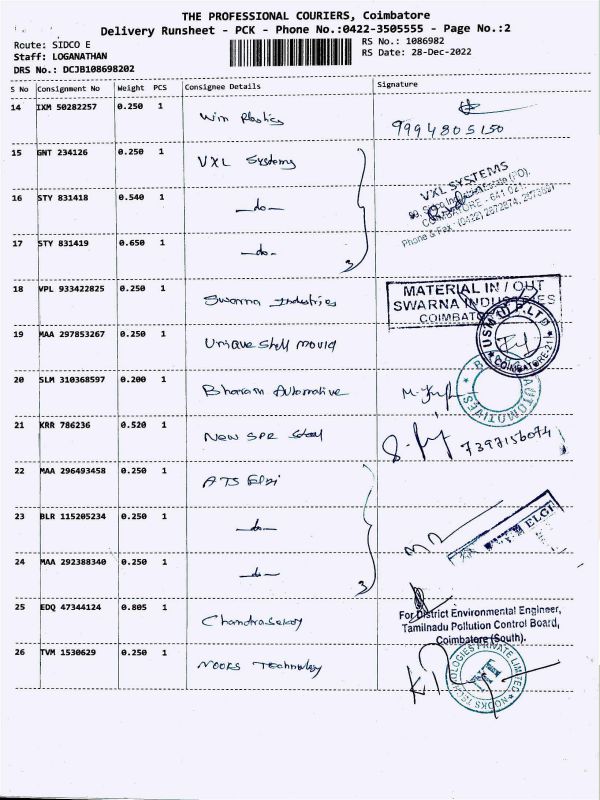 THE PROFESSIONAL COURIERS, Coimbatore
Delivery Runsheet - PCK - Phone No.:0422-3505555 - Page No.:2
Route: SIDCO E
RS No.: 1086982
Staff: LOGANATHAN
RS Date: 28-Dec-2022
DRS No.: DCJB108698202
S No Consignment No Weight PCS Consignee Details Signature
14 IXM 50282257 0.250 1 Win Plastics
9994805150
15 GNT 234126 0.250 1 VXL Systems
VXL SYSTEMS
16 STY 831418 0.540 1 —do—
COIMBATORE - 641 021.
17 STY 831419 0.650 1 —do—
3
18 VPL 933422825 0.250 1 Swarna Industries
MATERIAL IN / OUT
SWARNA INDUSTRIES
COIMBATO
19 MAA 297853267 0.250 1 Unique Shell mould
P.LTD
COIMBATORE-21
20 SLM 310368597 0.200 1 Bharani Automotive
AUTOMOTIVES
21 KRR 786236 0.520 1 New SPR Steel
7397156074
22 MAA 296493458 0.250 1 ATS Elgi
23 BLR 115205234 0.250 1 —do—
ELGI
24 MAA 292388340 0.250 1 —do—
3
25 EDQ 47344124 0.805 1 Chandrasekar
For District Environmental Engineer,
Tamilnadu Pollution Control Board,
Coimbatore (South).
26 TVM 1530629 0.250 1 Nooks Technology
NOOKS TECHNOLOGIES PRIVATE LIMITED